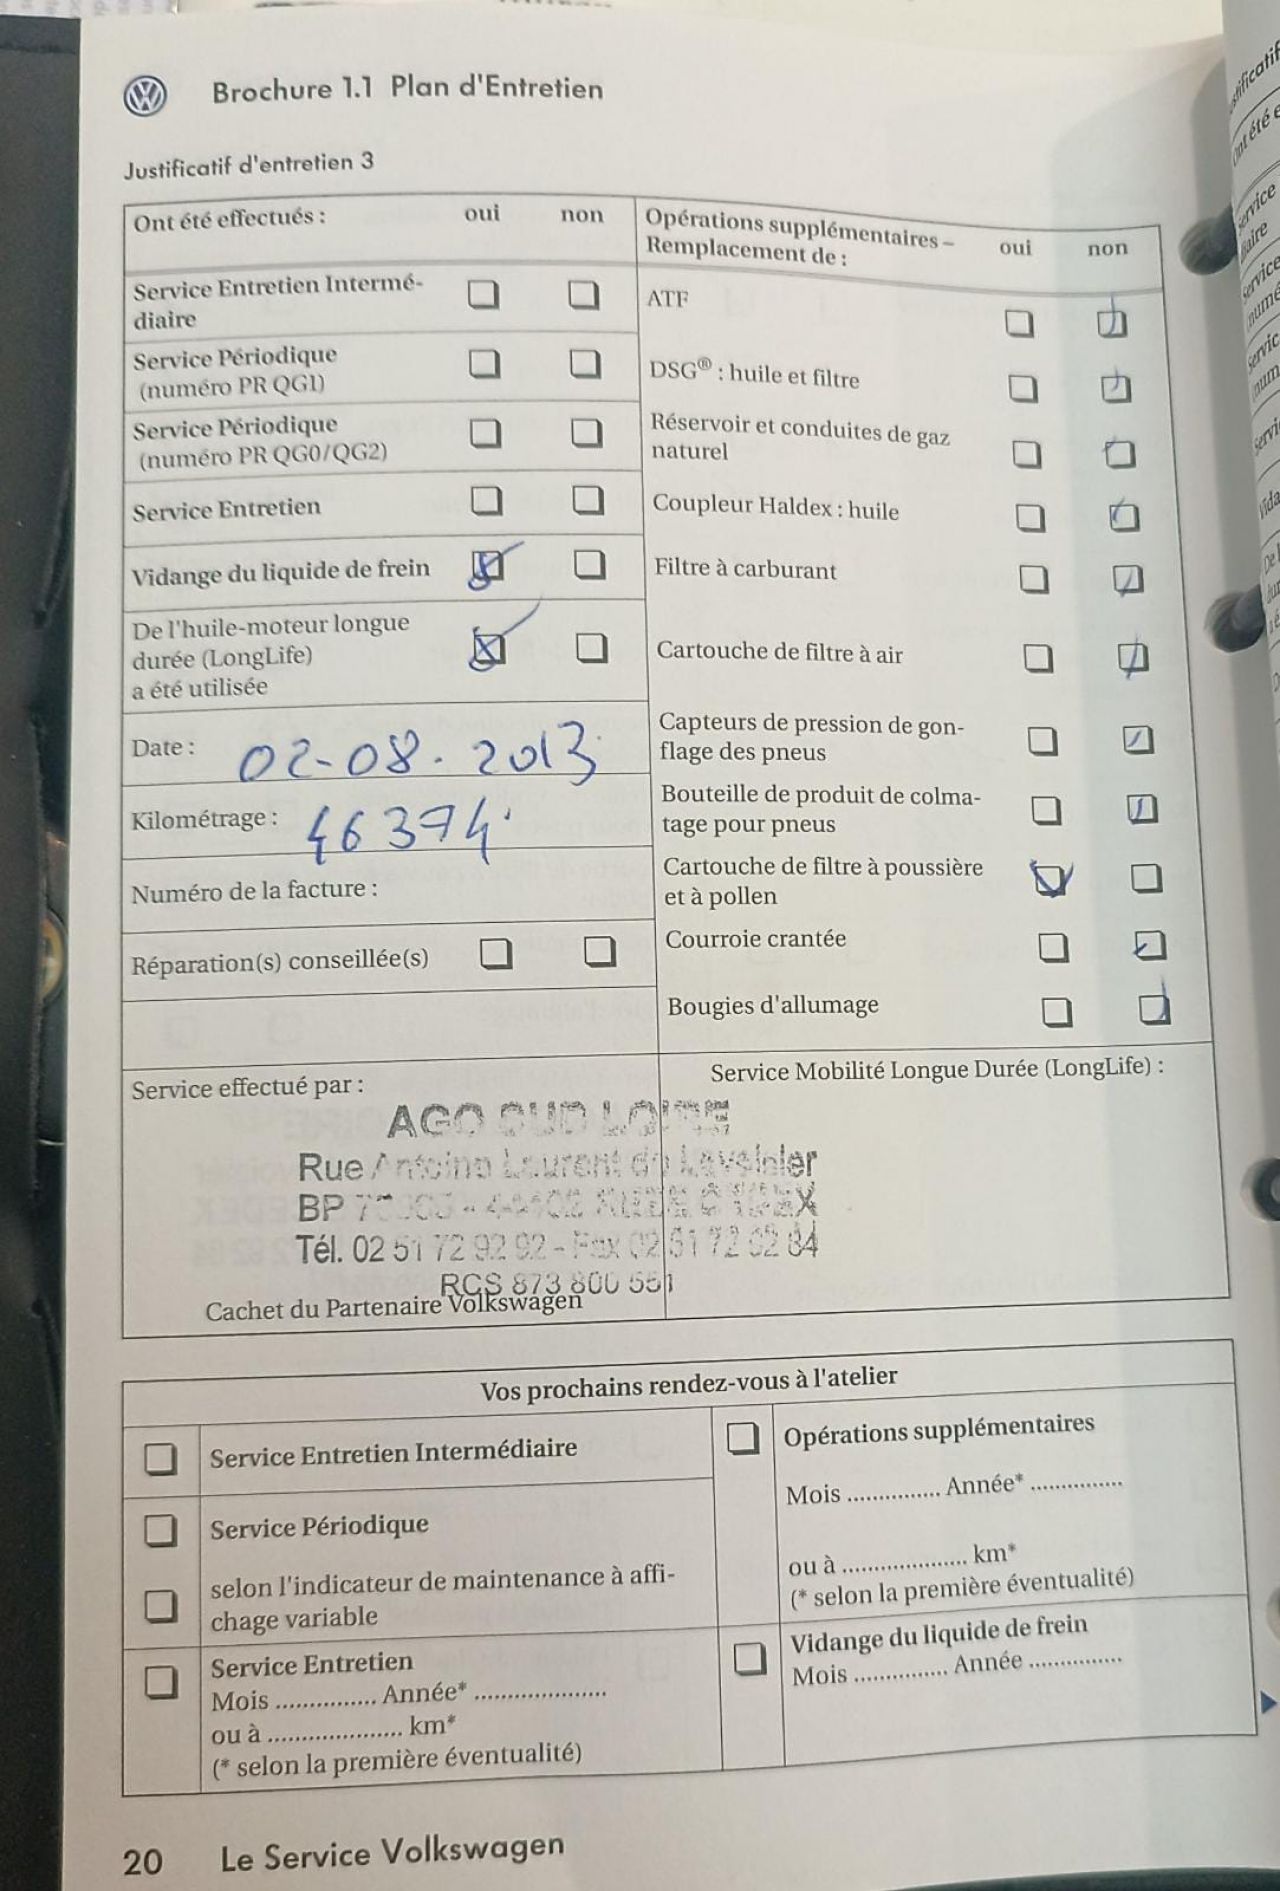 Brochure 1.1 Plan d'Entretien
Justificatif d'entretien 3
Ont été effectués : oui non
Service Entretien Intermé-
diaire
Service Périodique
(numéro PR QG1)
Service Périodique
(numéro PR QG0/QG2)
Service Entretien
Vidange du liquide de frein
De l'huile-moteur longue
durée (LongLife)
a été utilisée
Date : 02-08.2013
Kilométrage : 46374
Numéro de la facture :
Réparation(s) conseillée(s)
Opérations supplémentaires –
Remplacement de : oui non
ATF
DSG® : huile et filtre
Réservoir et conduites de gaz
naturel
Coupleur Haldex : huile
Filtre à carburant
Cartouche de filtre à air
Capteurs de pression de gon-
flage des pneus
Bouteille de produit de colma-
tage pour pneus
Cartouche de filtre à poussière
et à pollen
Courroie crantée
Bougies d'allumage
Service effectué par :
AGO SUD LOIRE
Rue Antoine Laurent de Lavoisier
BP
Tél. 02 51 72 92 92 - Fax 02 51 72 92 84
RCS 873 800 551
Cachet du Partenaire Volkswagen
Service Mobilité Longue Durée (LongLife) :
Vos prochains rendez-vous à l'atelier
Service Entretien Intermédiaire
Service Périodique
selon l'indicateur de maintenance à affi-
chage variable
Service Entretien
Mois ............... Année* ....................
ou à .................... km*
(* selon la première éventualité)
Opérations supplémentaires
Mois .............. Année* ..............
ou à ................... km*
(* selon la première éventualité)
Vidange du liquide de frein
Mois .............. Année ..............
20 Le Service Volkswagen